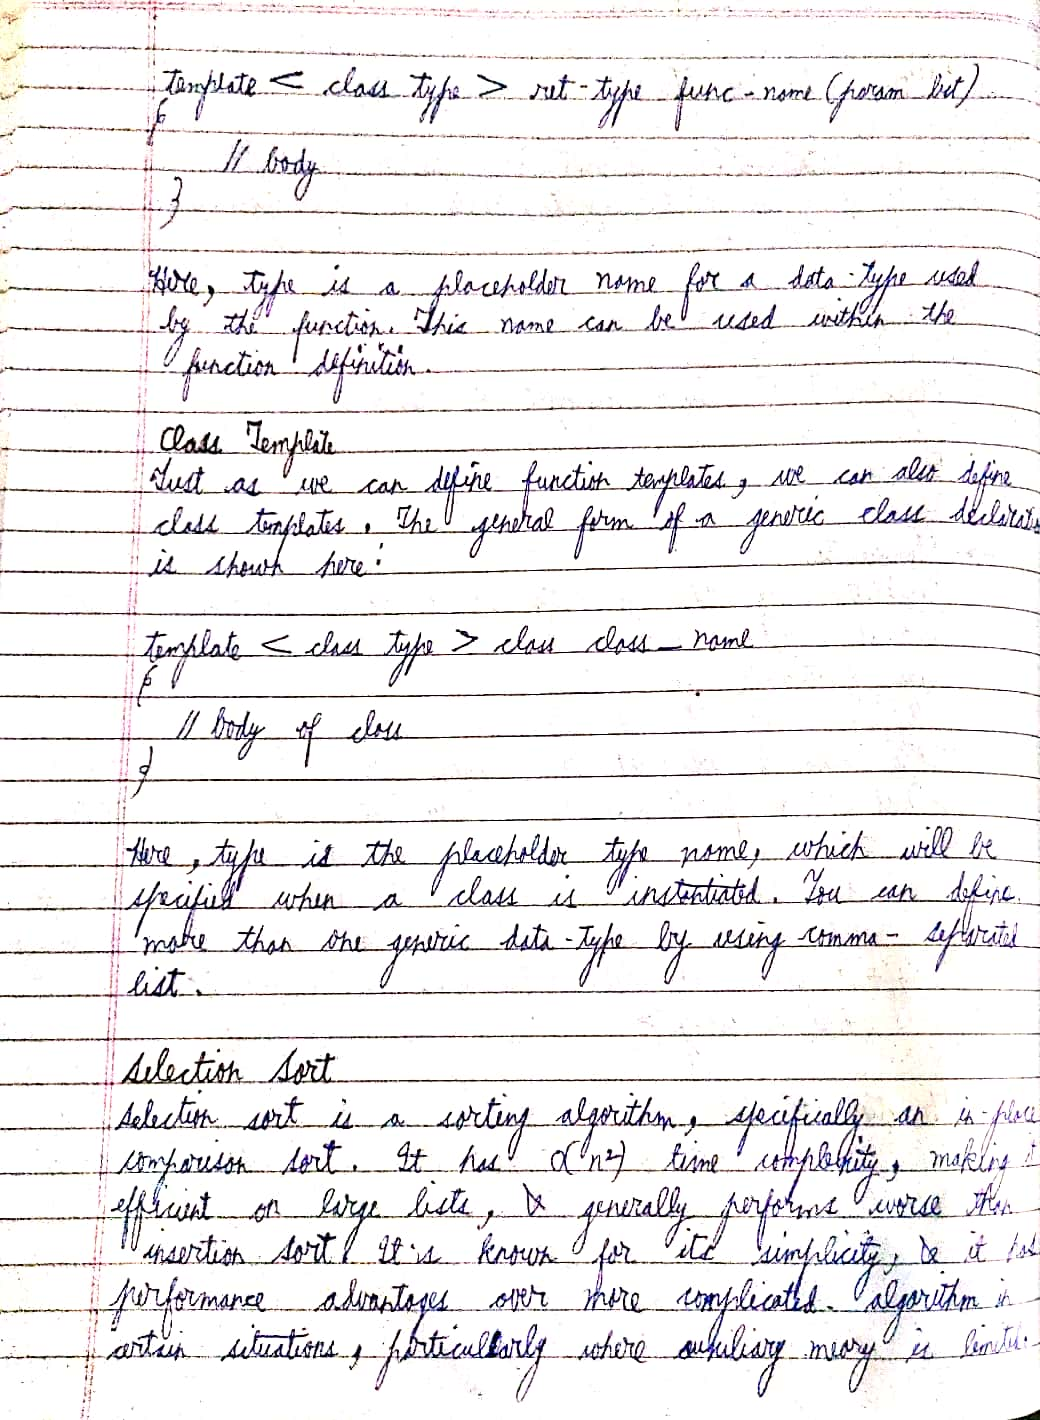 template < class type > ret-type func-name (param list)
{
// body
}
Here, type is a placeholder name for a data-type used
by the function. This name can be used within the
function definition.
Class Template
Just as we can define function templates, we can also define
class templates. The general form of a generic class declaratio
is shown here:
template < class type > class class_name
{
// body of class
}
Here, type is the placeholder type name, which will be
specified when a class is instantiated. You can define
more than one generic data-type by using comma-separated
list.
Selection Sort
Selection sort is a sorting algorithm, specifically an in-place
comparison sort. It has O(n²) time complexity, making it
efficient on large lists, & generally performs worse than
insertion sort. It is known for its simplicity, & it has
performance advantages over more complicated algorithm in
certain situations, particularly where auxiliary meory is limited.